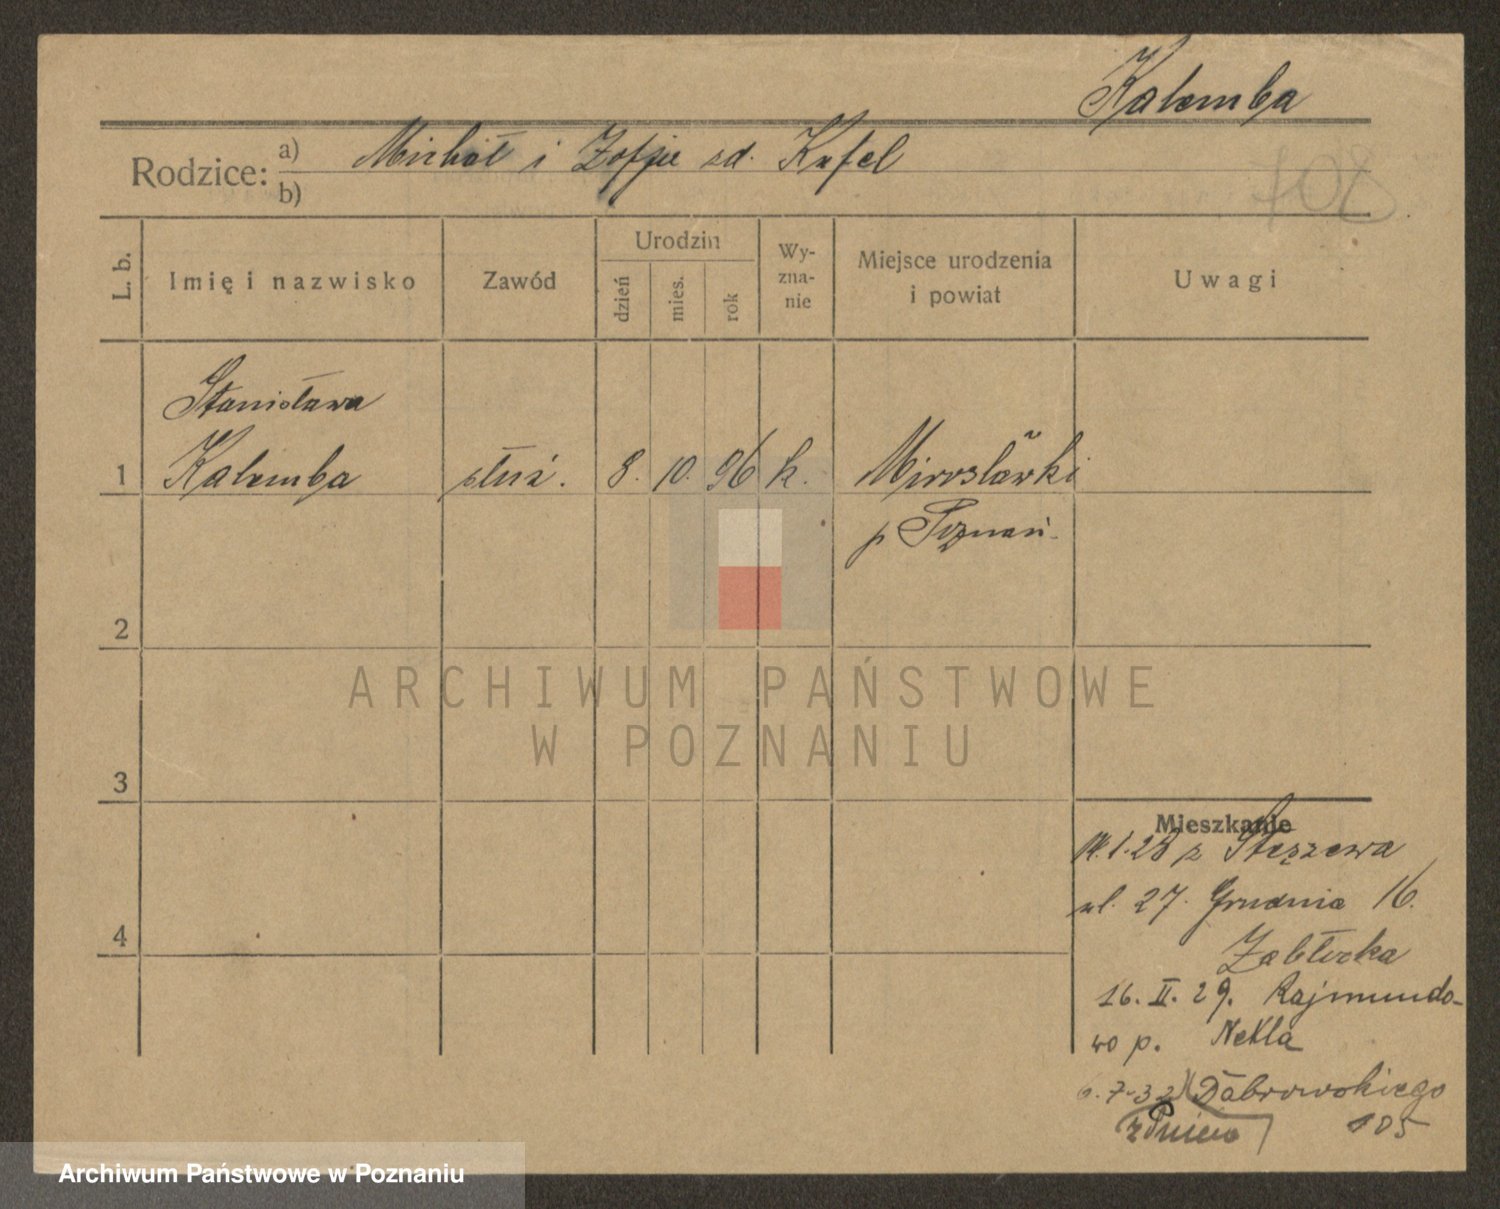 Kalemba
Rodzice: a) Michał i Zofja zd. Kafel
b)
L. b. Imię i nazwisko Zawód Urodzin dzień mies. rok Wy-zna-nie Miejsce urodzenia i powiat Uwagi
Stanisława
1 Kalemba służ. 8. 10. 96 k. Mirosławki
p Poznań
2
ARCHIWUM PAŃSTWOWE
W POZNANIU
3
Mieszkanie
14.1.28 z Stęszewa
ul. 27. Grudnia 16.
Zabłocka
4
16. II. 29. Rajmundo-
wo p. Nekla
6.7-32 Dąbrowskiego
105
Archiwum Państwowe w Poznaniu